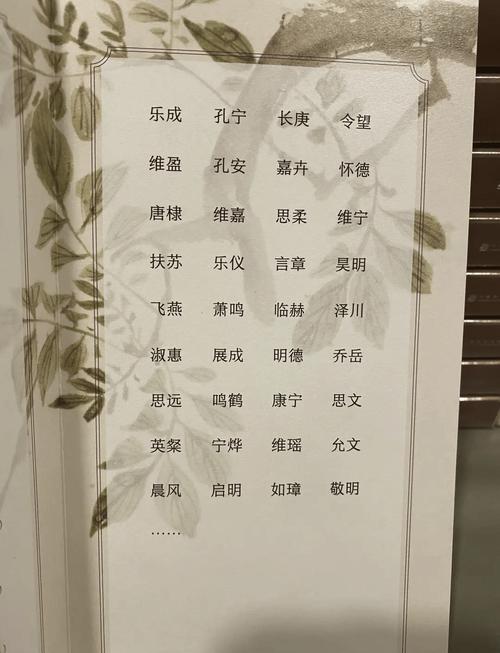 乐成 孔宁 长庚 令望
维盈 孔安 嘉卉 怀德
唐棣 维嘉 思柔 维宁
扶苏 乐仪 言章 昊明
飞燕 萧鸣 临赫 泽川
淑惠 展成 明德 乔岳
思远 鸣鹤 康宁 思文
英粲 宁烨 维瑶 允文
晨风 启明 如璋 敬明
……